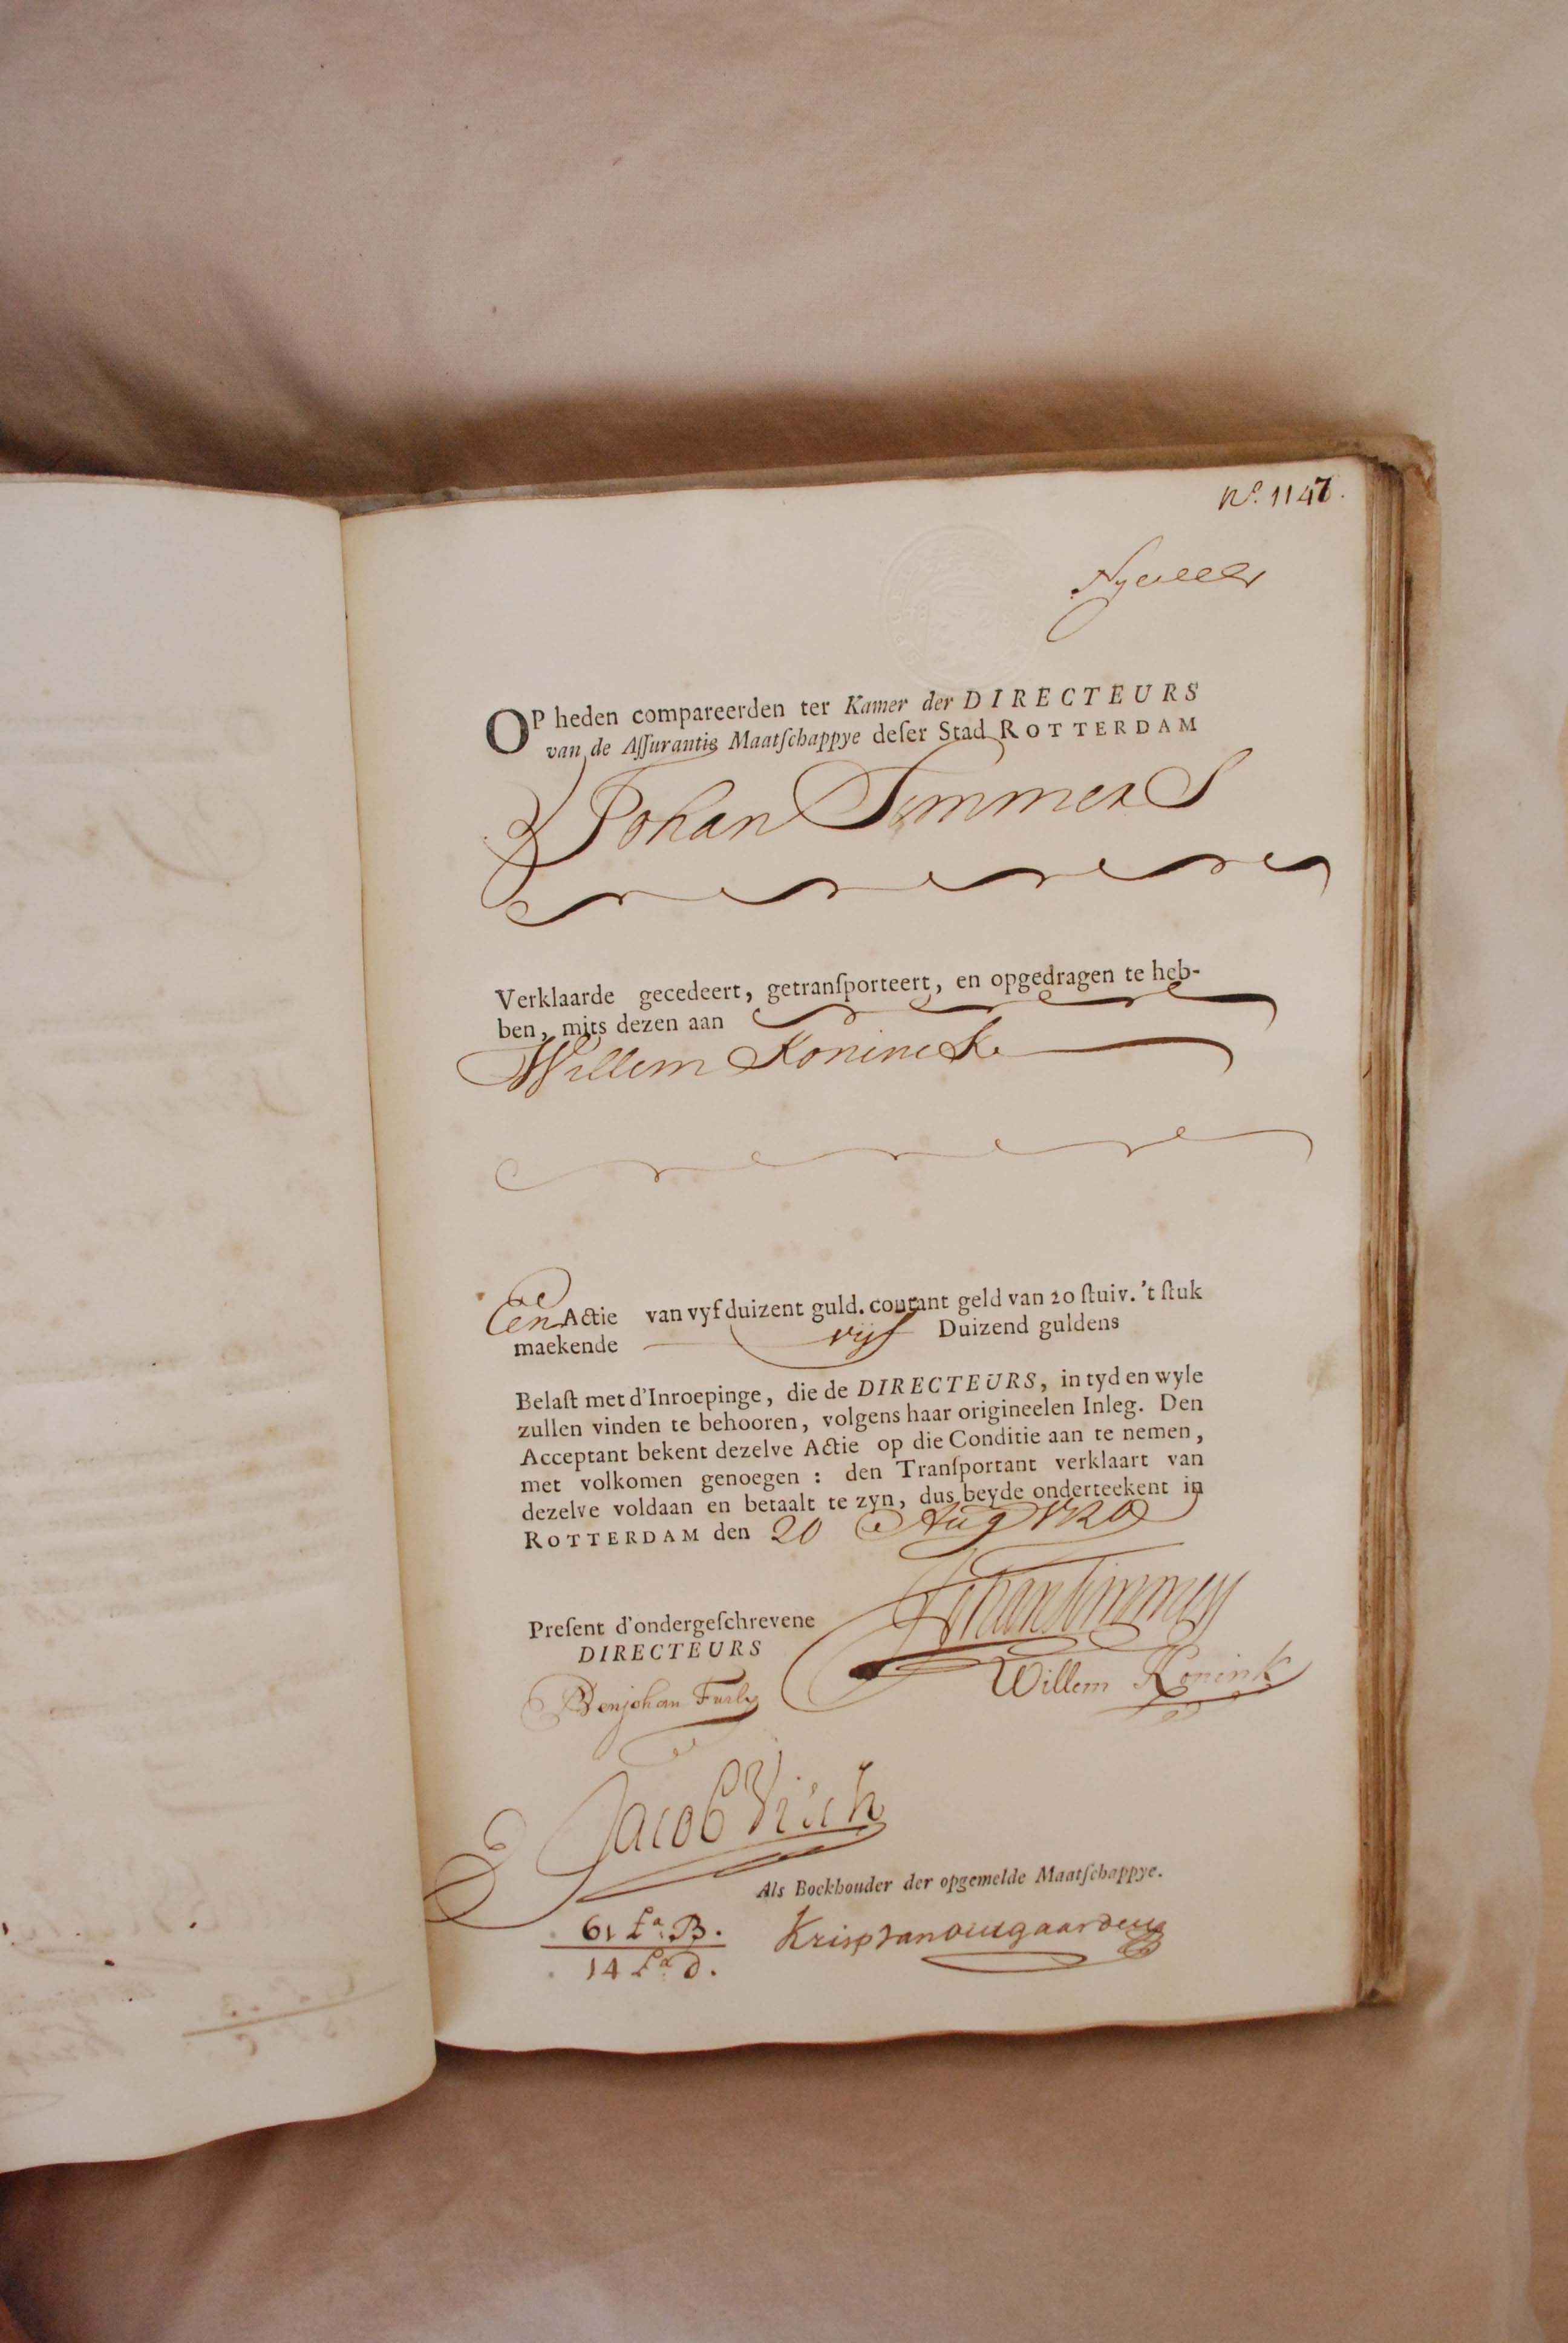 No. 1147.
OP heden compareerden ter Kamer der DIRECTEURS
van de Aſſurantie Maatſchappye deſer Stad ROTTERDAM
Johan Timmers
Verklaarde gecedeert, getranſporteert, en opgedragen te heb-
ben, mits dezen aan
Willem Koninck
Een Actie van vyfduizent guld. courant geld van 20 ſtuiv. 't ſtuk
maekende vijf Duizend guldens
Belaſt met d'Inroepinge, die de DIRECTEURS, in tyd en wyle
zullen vinden te behooren, volgens haar origineelen Inleg. Den
Acceptant bekent dezelve Actie op die Conditie aan te nemen,
met volkomen genoegen : den Tranſportant verklaart van
dezelve voldaan en betaalt te zyn, dus beyde onderteekent in
ROTTERDAM den 20 Aug 1720
Johan Timmers
Preſent d'ondergeſchrevene
DIRECTEURS
Willem Konink
Benjohan Furly
Jacob Visch
Als Boekhouder der opgemelde Maatſchappye.
61 La. B.
Krisp van
14 La. D.